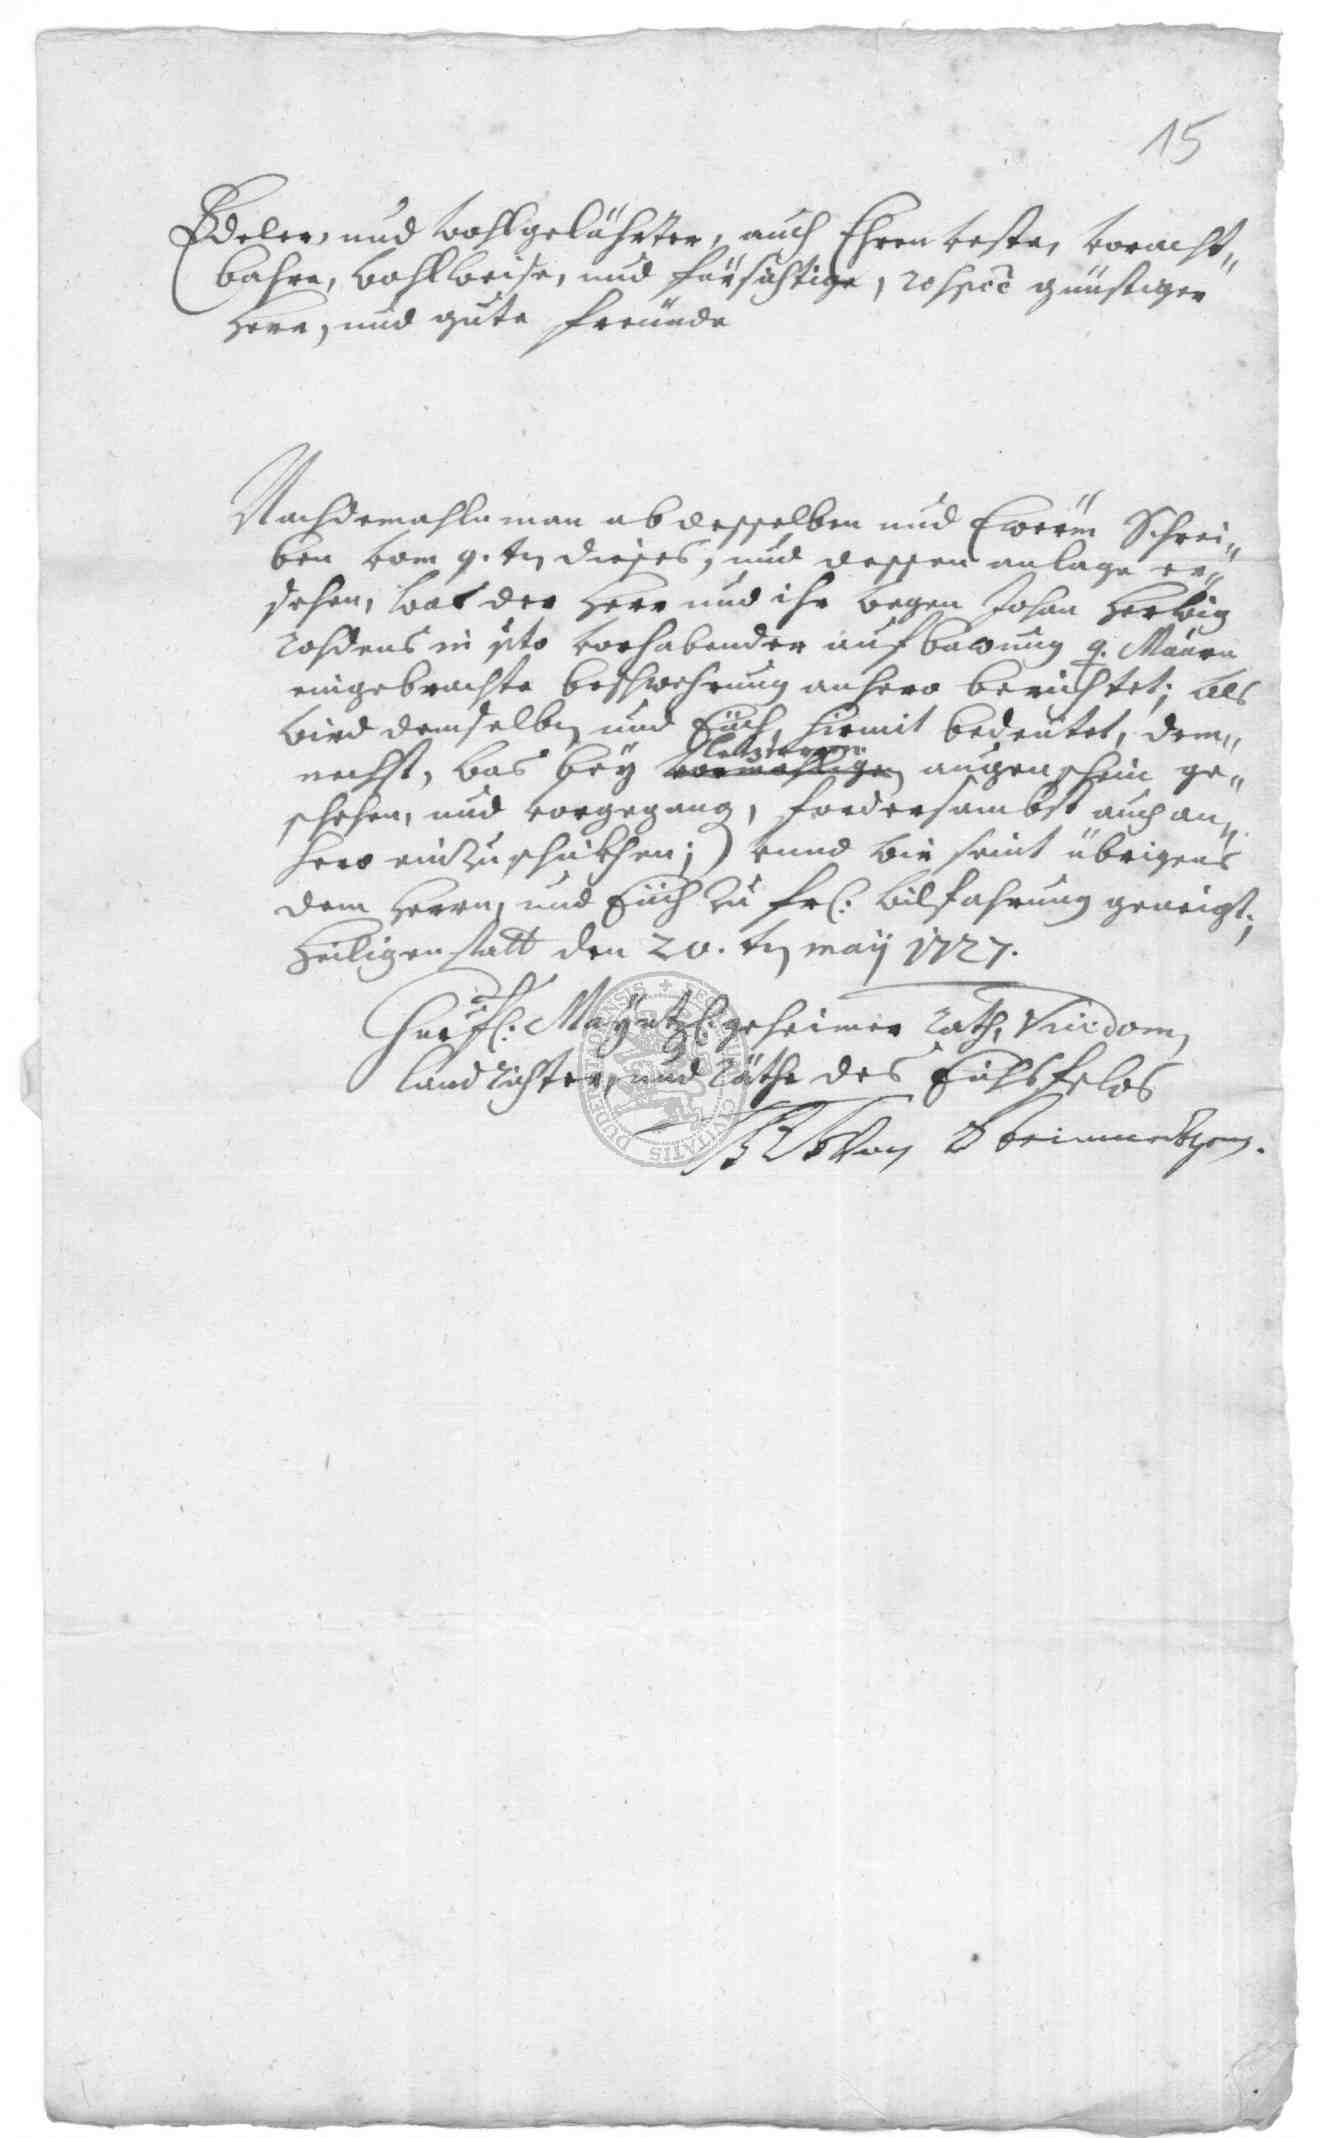 15
Edeler, und wohlgelährter, auch Ehrenveste, voracht„
bahre, wohlweise, und fürsichtige, günstiger
Herr, und gute freünde
Nachdemahln man ab desselben und Ewerm Schrei„
ben vom 9.ten dieses, und dessen anlage er„
sehen, was der Herr und ihr wegen Johan Herwig
Rohdens in pto vorhabender aufbawung q. Mauren
eingebrachte beschwehrung anhero berichtet; als
wird demselben und Eüch, hiermit bedeütet, dem„
letzterem
nechst, was beÿ vormahligen augenschein ge„
schehen, und vorgegang, fordersambst auch an„
hero einzuschickhen; und wir seint übrigens
dem Herrn, und Eüch zu frl: wilfahrung geneigt;
Heiligenstatt den 20.ten maÿ 1727.
Churfl: Mayntzl: geheimer Rath, Vicedom,
Landrichter, und Räthe des Eichsfelds
von
SIGILLUM CIVITATIS DUDERSTADENSIS